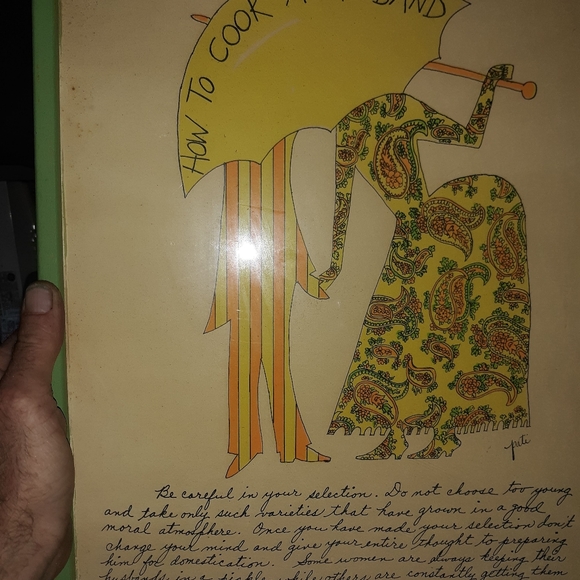 HOW TO COOK A HUSBAND
pete
Be careful in your selection. Do not choose too young
and take only such varieties that have grown in a good
moral atmosphere. Once you have made your selection don't
change your mind and give your entire thought to preparing
him for domestication. Some women are always keeping their
husbands in a pickle, while others are constantly getting them